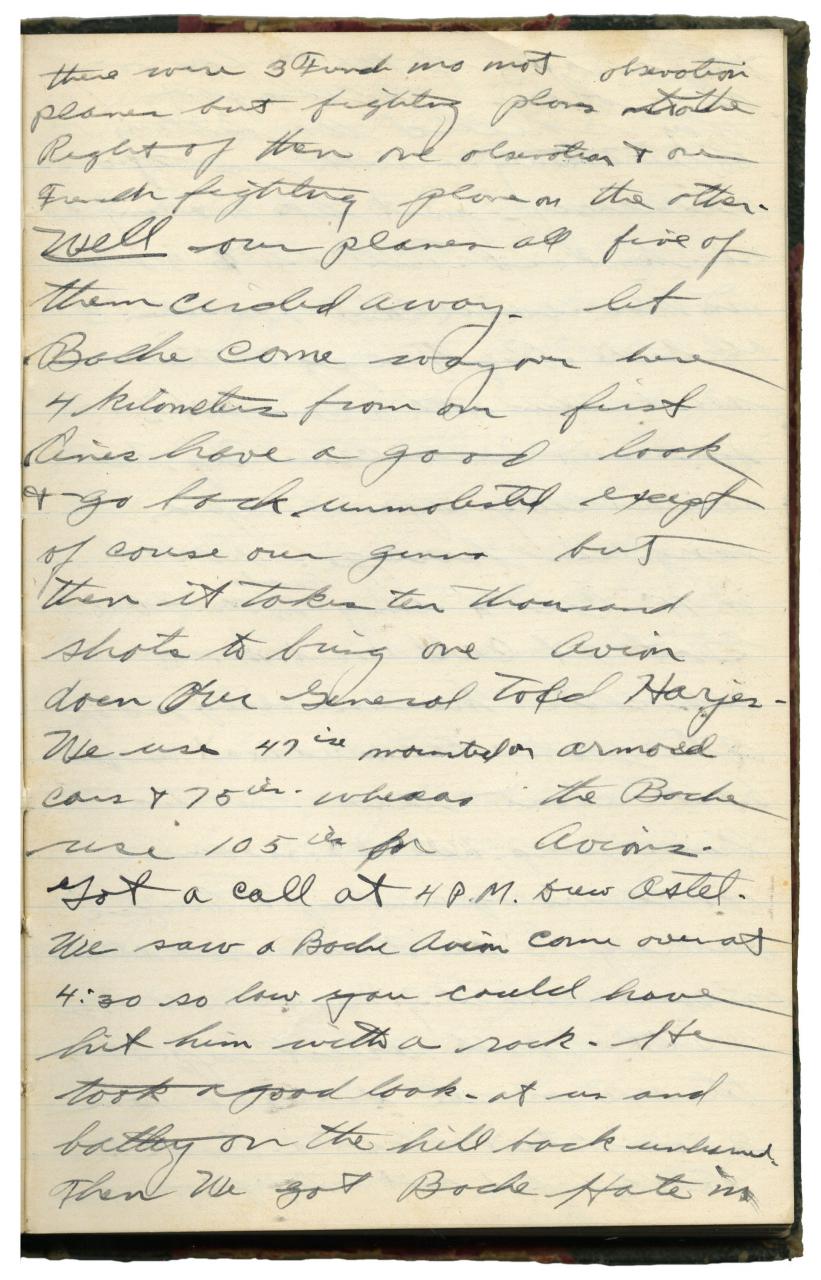 there were 3 French no not observation
planes but fighting planes to the
Right of them one observation & one
French fighting plane on the other.
Well our planes all five of
them circled away. let
Boche come way over here
4 kilometers from our first
lines have a good look
& go back unmolested except
of couse our guns but
then it takes ten thousand
shots to bring one Avion
down Our General Told Harjes.
We use 47 ies mounted on armored
cars & 75 ies. whereas the Boche
use 105 ies for Avions.
Got a call at 4 P.M. Drew Ostel.
We saw a Boche Avion come over at
4:30 so low you could have
hit him with a rock. He
took a good look at us and
battery on the hill back unharmed.
Then We got Boche Hate in